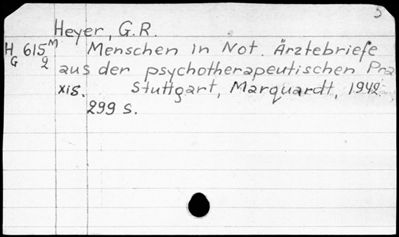 5
Heyer, G.R.
H 615 M Menschen in Not. Ärztebriefe
G 2 aus der psychotherapeutischen Pra
xis. Stuttgart, Marquardt, 1942
299 s.